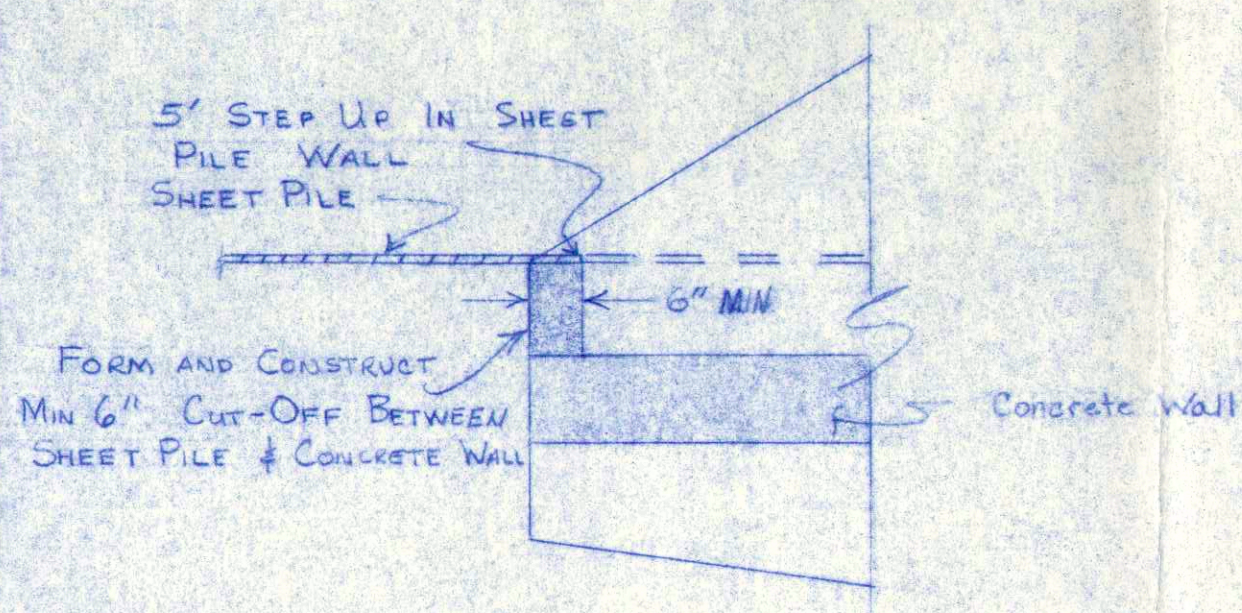 5' STEP UP IN SHEET
PILE WALL
SHEET PILE
6" MIN
FORM AND CONSTRUCT
MIN 6" CUT-OFF BETWEEN
SHEET PILE & CONCRETE WALL
Concrete Wall